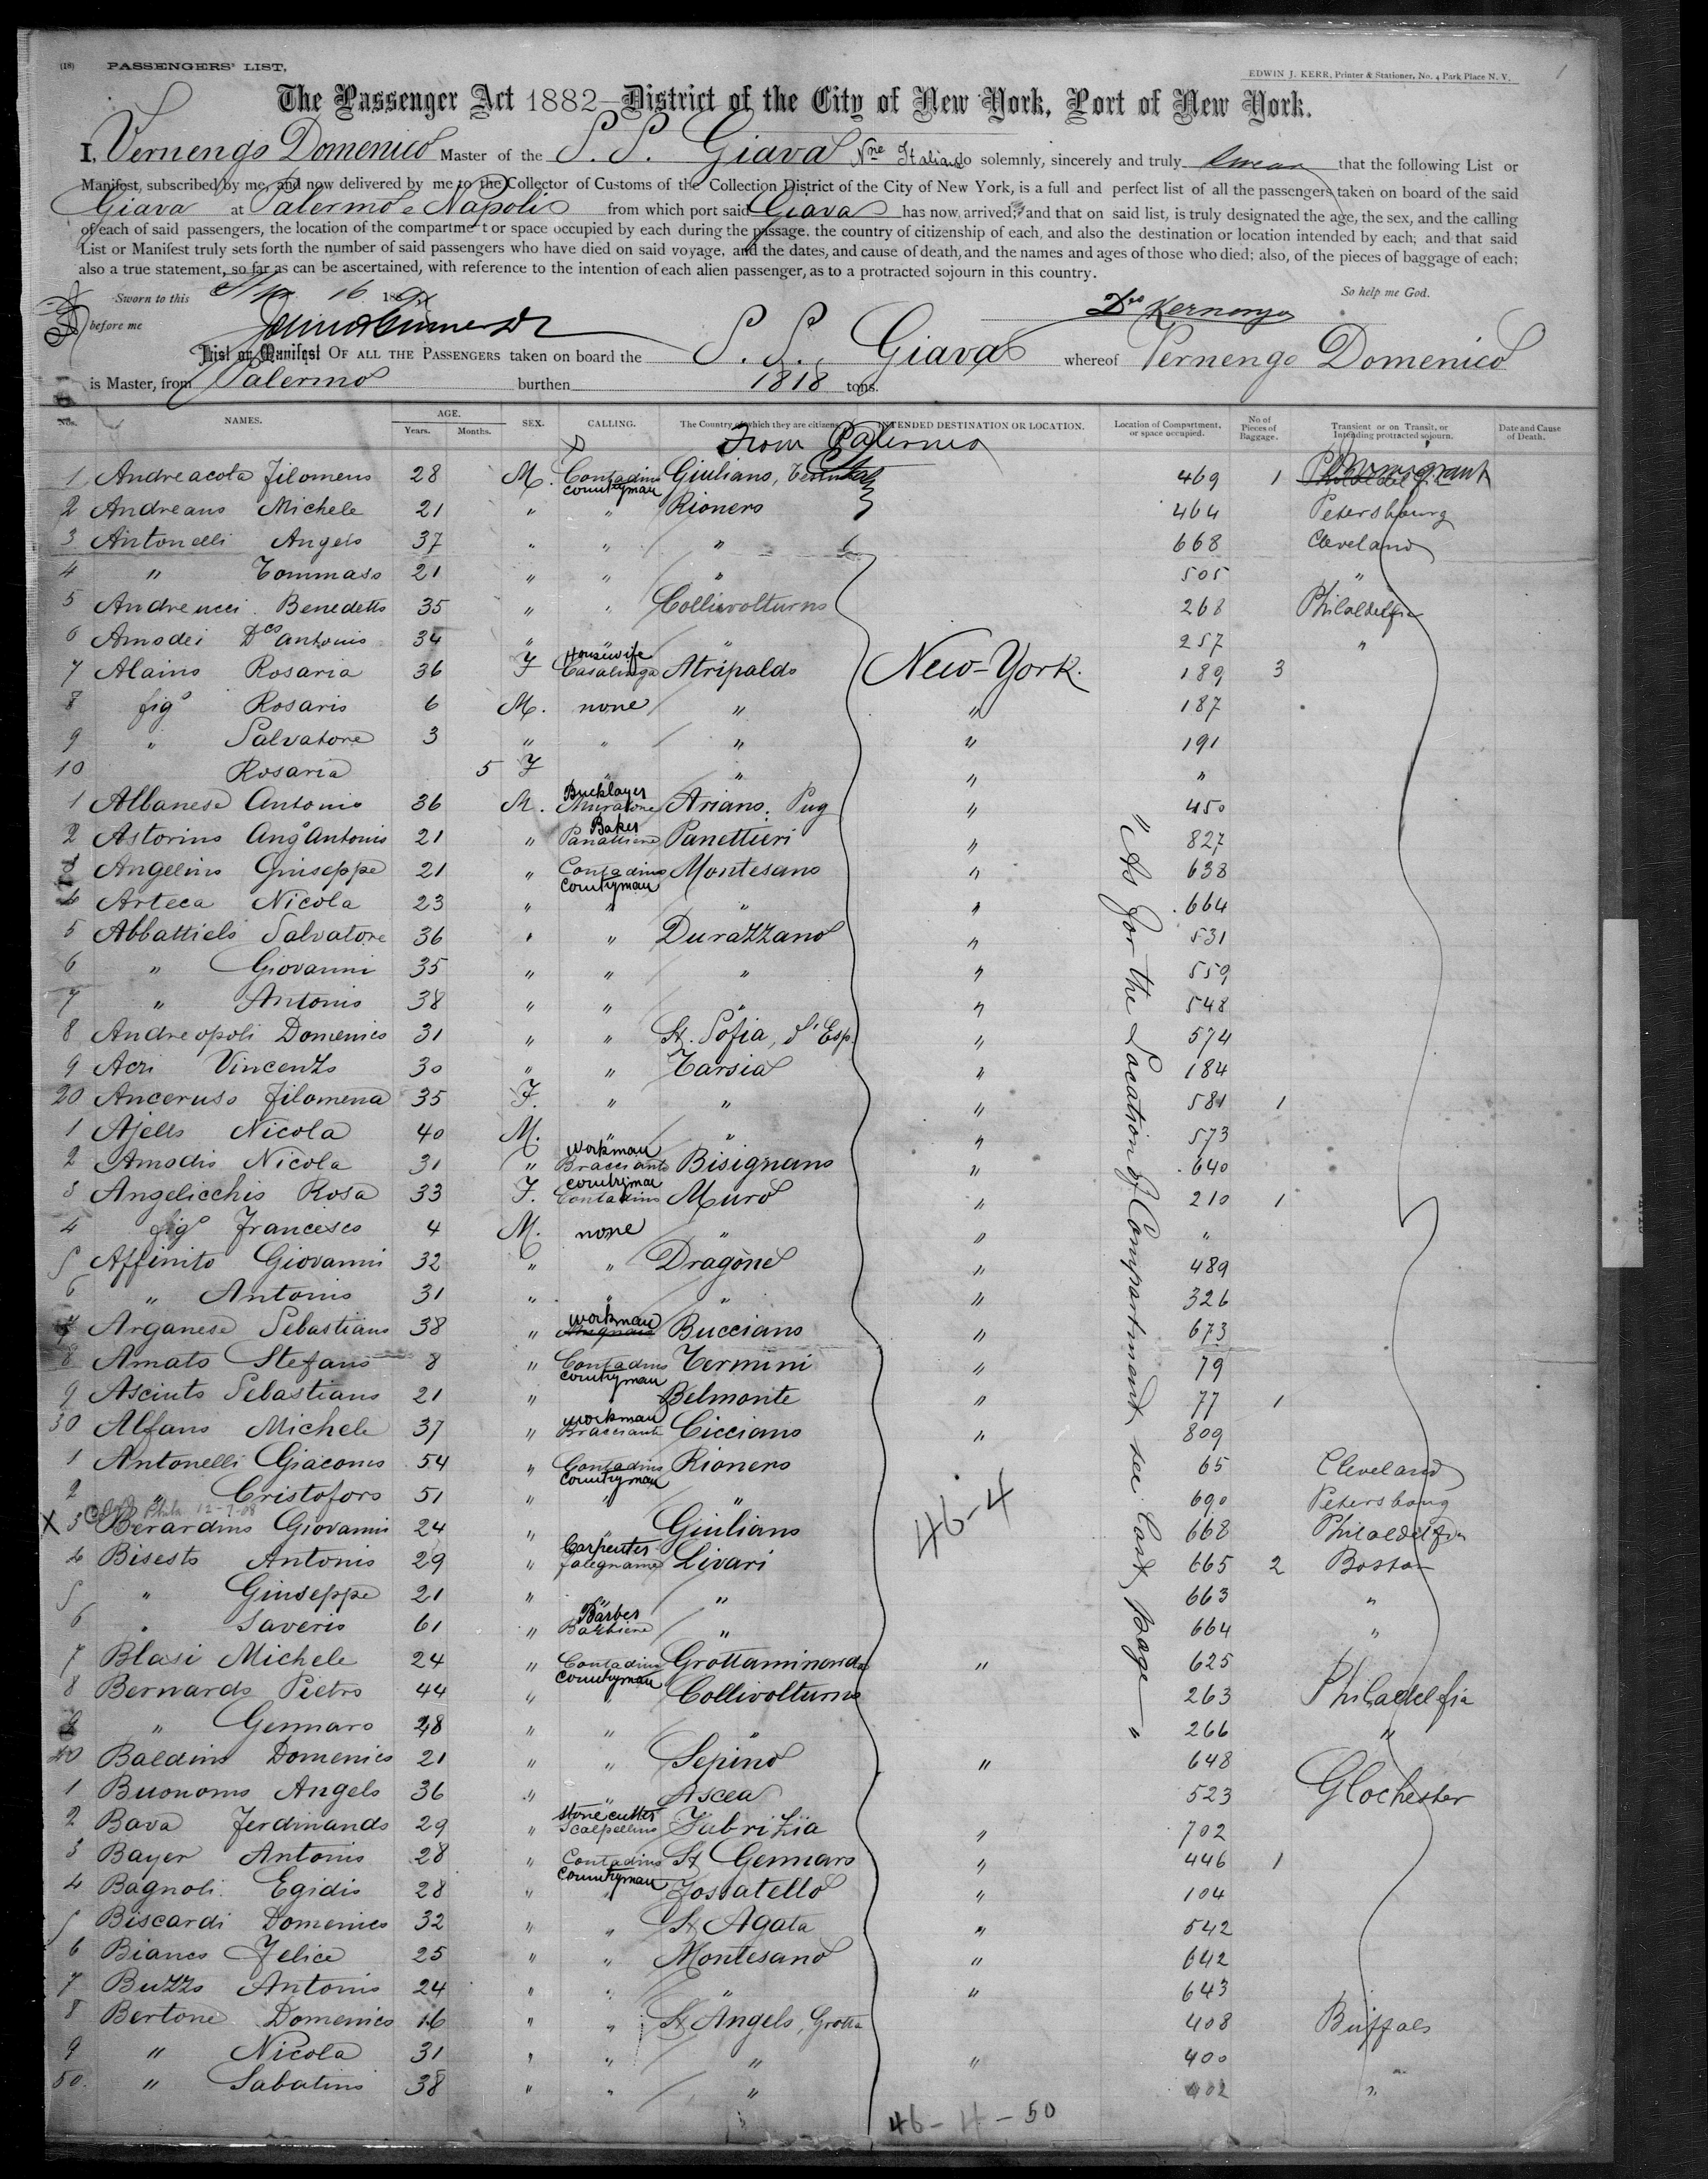 (18) PASSENGERS' LIST. EDWIN J. KERR, Printer & Stationer, No. 4 Park Place N. Y. 1
The Passenger Act 1882—District of the City of New York, Port of New York.
I, Vernengo Domenico Master of the S. S. Giava Nne Italian do solemnly, sincerely and truly swear that the following List or
Manifest, subscribed by me, and now delivered by me to the Collector of Customs of the Collection District of the City of New York, is a full and perfect list of all the passengers taken on board of the said
Giava at Palermo e Napoli from which port said Giava has now arrived; and that on said list, is truly designated the age, the sex, and the calling
of each of said passengers, the location of the compartment or space occupied by each during the passage, the country of citizenship of each, and also the destination or location intended by each; and that said
List or Manifest truly sets forth the number of said passengers who have died on said voyage, and the dates, and cause of death, and the names and ages of those who died; also, of the pieces of baggage of each;
also a true statement, so far as can be ascertained, with reference to the intention of each alien passenger, as to a protracted sojourn in this country.
Sworn to this 16 189 So help me God.
before me
List or Manifest OF ALL THE PASSENGERS taken on board the S. S. Giava whereof Vernengo Domenico
is Master, from Palermo burthen 1818 tons.
Nos. NAMES. AGE. Years. Months. SEX. CALLING. The Country of which they are citizens. INTENDED DESTINATION OR LOCATION. Location of Compartment, or space occupied. No of Pieces of Baggage. Transient or on Transit, or Intending protracted sojourn. Date and Cause of Death.
From Palermo
1 Andreacola Filomeno 28 M. Contadino countryman Giuliano, 469 1
2 Andreano Michele 21 " " Rionero 464 Petersbourg
3 Antonelli Angelo 37 " " " 668 Cleveland
4 " Tommaso 21 " " " 505 "
5 Andreucci Benedetto 35 " " Collivolturno 268 Philadelfia
6 Amodei Dco Antonio 34 " " " 257 "
7 Alaino Rosaria 36 F Housewife Casalinga Atripaldo New-York. 189 3
8 figo Rosario 6 M. none " " 187
9 " Salvatore 3 " " " " 191
10 Rosaria 5 F " " " "
1 Albanese Antonio 36 M. Bricklayer Muratore Ariano. Pug " 450
2 Astorino Ango Antonio 21 " Baker Panattiere Panettieri " 827
3 Angelino Giuseppe 21 " Contadino countryman Montesano " 638
4 Arteca Nicola 23 " " " " 664
5 Abbattielo Salvatore 36 " " Durazzano " 531
6 " Giovanni 35 " " " " 559
7 " Antonio 38 " " " " 548
8 Andreopoli Domenico 31 " " St. Sofia, d'Esp. " 574
9 Acri Vincenzo 30 " " Tarsia " 184
20 Anceruso Filomena 35 F. " " " 581 1
1 Ajello Nicola 40 M. " " " 573
2 Amodio Nicola 31 " workman Bracciante Bisignano " 640
3 Angelicchio Rosa 33 F. countryman Contadino Muro " 210 1
4 figo Francesco 4 M. none " " "
5 Affinito Giovanni 32 " " Dragone " 489
6 " Antonio 31 " " " " 326
7 Arganese Sebastiano 38 " workman Bucciano " 673
8 Amato Stefano 8 " Contadino countryman Termini " 79
9 Asciuto Sebastiano 21 " Belmonte " 77 1
30 Alfano Michele 37 " workman Bracciante Cicciano " 809
1 Antonelli Giacomo 54 " Contadino countryman Rionero 65 Cleveland
2 " Cristoforo 51 " " " 690 Petersbourg
Phila 12-7-08
X 3 Berardino Giovanni 24 " Giuliano 46-4 668 Philadelfia
4 Bisesto Antonio 29 " Carpenter falegname Livari 665 2 Boston
5 " Giuseppe 21 " " " 663 "
6 " Saverio 61 " Barber Barbiere " 664 "
7 Blasi Michele 24 " Contadino countryman Grottaminarda " 625
8 Bernardo Pietro 44 " Collivolturno 263 Philadelfia
9 " Gennaro 28 " " " 266 "
40 Baldino Domenico 21 " " Sepino " 648
1 Buonomo Angelo 36 " " Ascea 523 Glochester
2 Bava Ferdinando 29 " stone cutter Scalpellino Fabrizia " 702
3 Bayer Antonio 28 " Contadino countryman St Gennaro " 446 1
4 Bagnoli Egidio 28 " " Fossatello " 104
5 Biscardi Domenico 32 " " St Agata " 542
6 Bianco Felice 25 " " Montesano " 642
7 Buzzo Antonio 24 " " " " 643
8 Bertone Domenico 16 " " St Angelo, Grotta 408 Buffalo
9 " Nicola 31 " " " " 400
50. " Sabatino 38 " " " 402 "
" As for the Location of Compartment, see last page — "
46-4-50